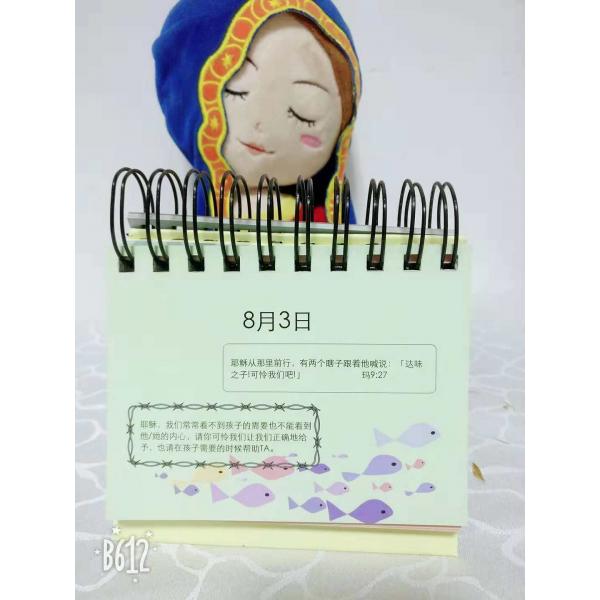 8月3日
耶稣从那里前行，有两个瞎子跟着他喊说：「达味
之子!可怜我们吧!」 玛9:27
耶稣，我们常常看不到孩子的需要也不能看到
他/她的内心，请你可怜我们让我们正确地给
予，也请在孩子需要的时候帮助TA。
B612